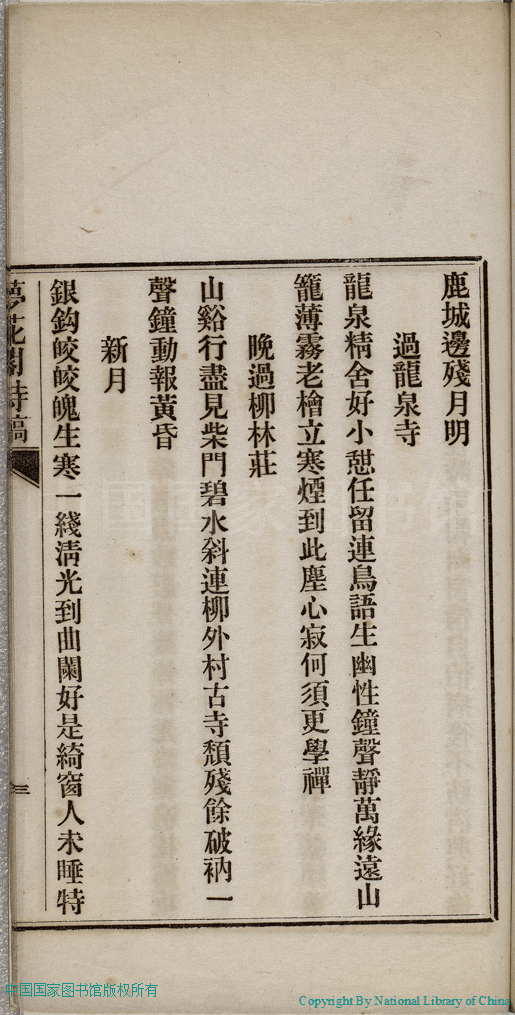 鹿城邊殘月明
過龍泉寺
龍泉精舍好小憇任留連鳥語生幽性鐘聲靜萬緣遠山
籠薄霧老檜立寒煙到此塵心寂何須更學禪
晚過柳林莊
山谿行盡見柴門碧水斜連柳外村古寺頹殘餘破衲一
聲鐘動報黃昏
新月
銀鈎皎皎魄生寒一綫清光到曲闌好是綺窗人未睡特
夢花閣詩稿
三
中国国家图书馆版权所有
Copyright By National Library of China